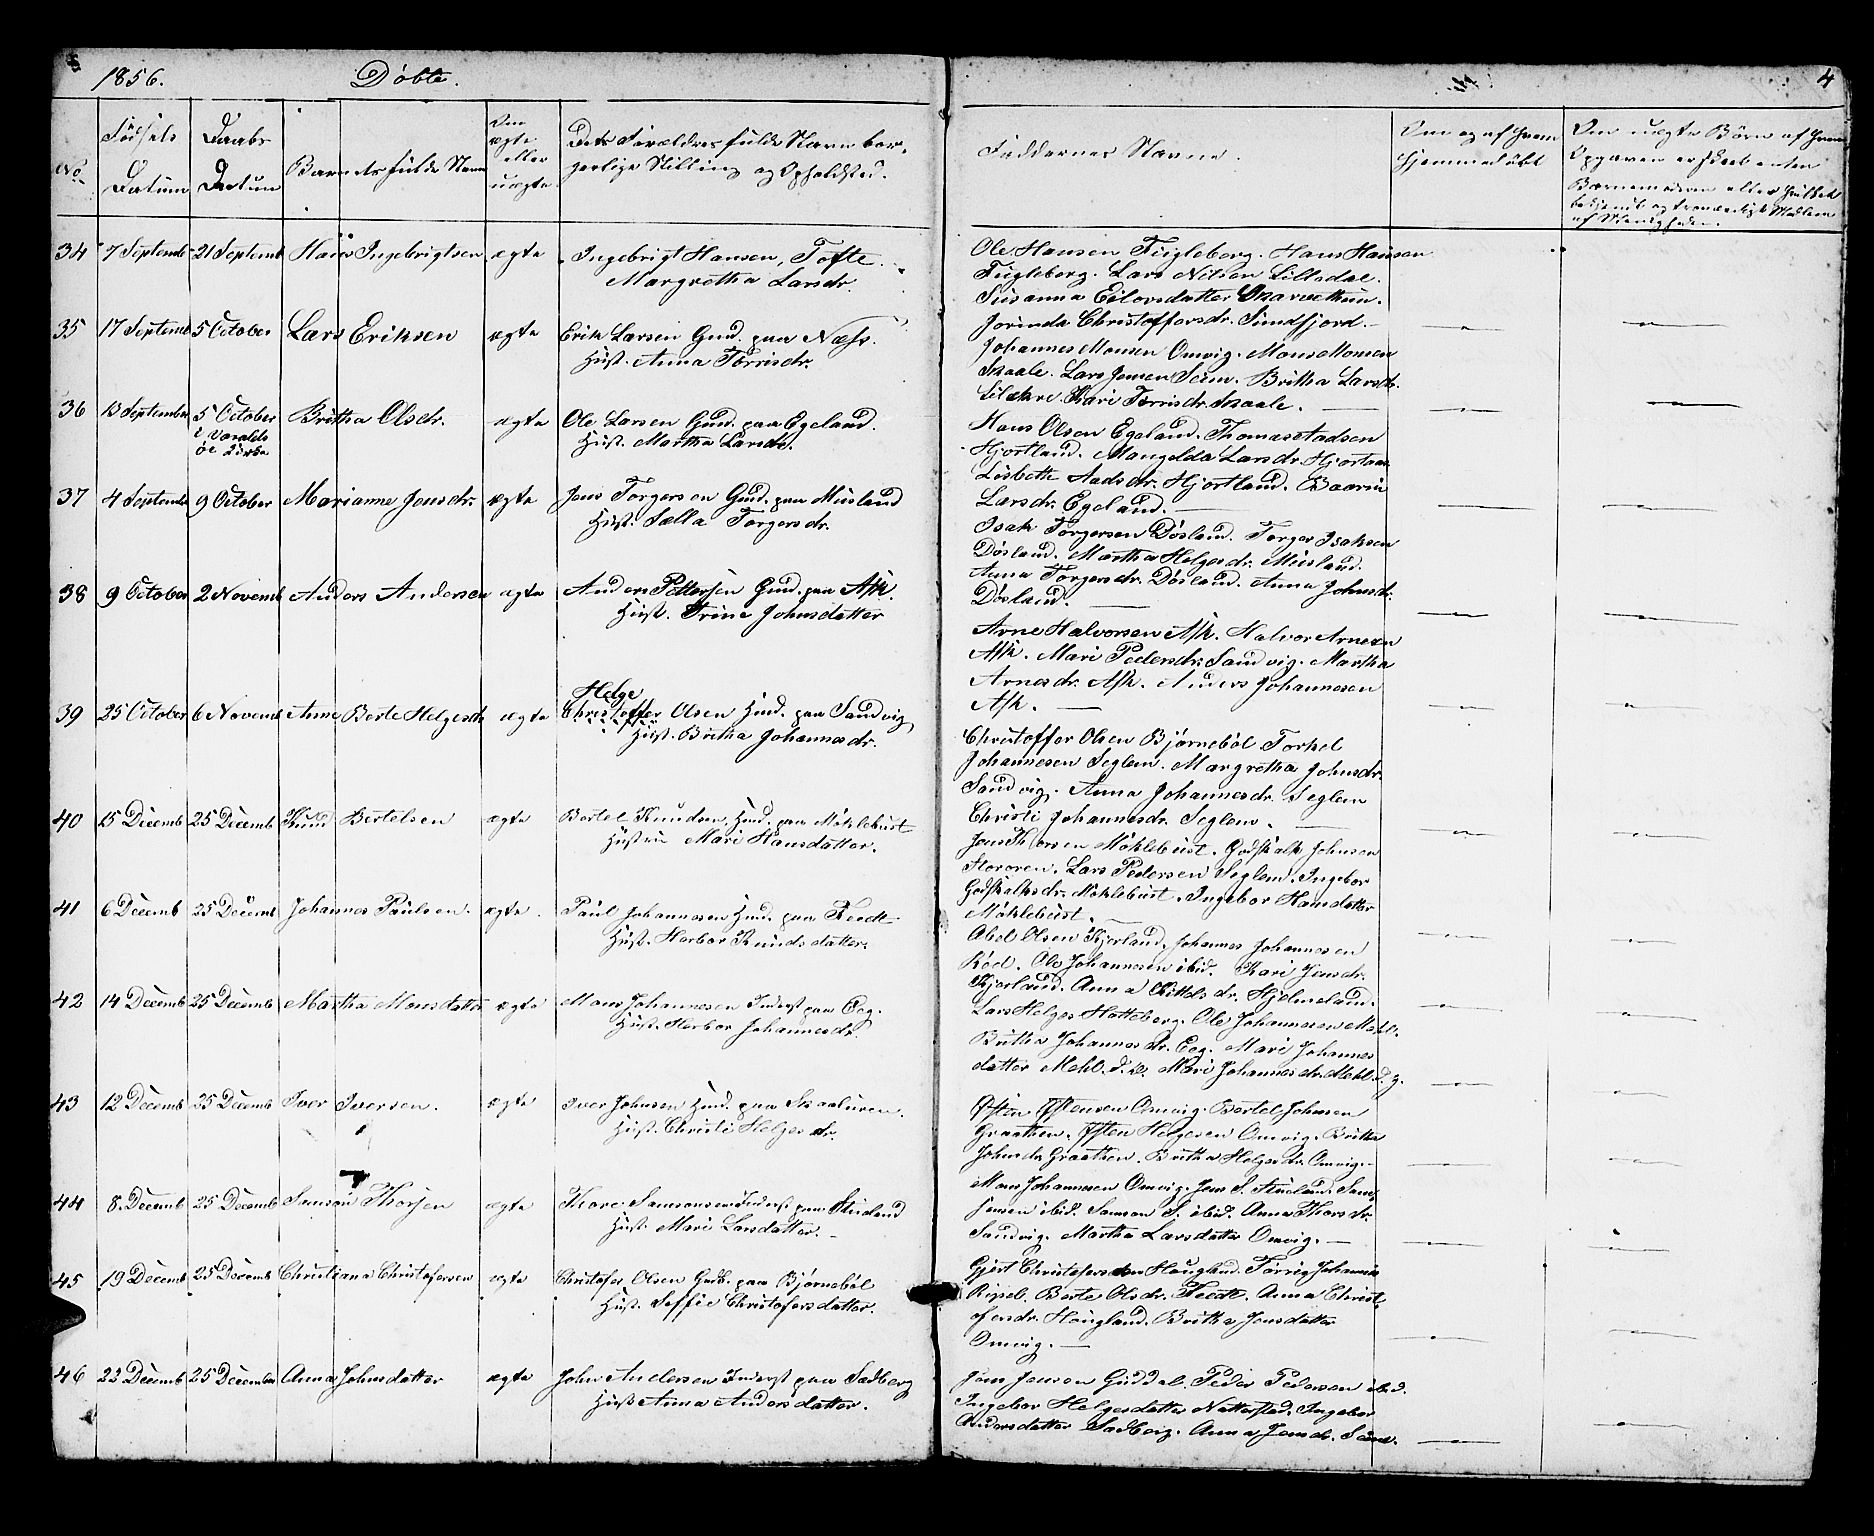 1856.
Döbte.
4
No
Födsels Datum
Daabs Datum
Barnets fulde Navn
Om ægte eller uægte
Dets Forældres fulde Navne borgerlige Stilling og Opholdsted.
Faddernes Navne.
Om og af hvem hjemmedöbt
Om uægte Börn af hvem Opgaven er skeet enten
Barnemoderen eller
af Menigheden.
34 7 Septemb 21 Septemb Hans Ingebrigtsen ægte Ingebrigt Hansen, Tofte
Margretha Larsdr.
Ole Hansen Fugleberg. Hans Hansen
Fugleberg. Lars Nilsen Lilledal.
Susanna Eilovsdatter
Jorinda Christoffersdr. Sundfjord.
35 17 Septemb 5 October Lars Eriksen ægte Erik Larsen Gmd. paa Næss.
Hust. Anna Torrisdr.
Johannes Monsen Omvig. Mons Monsen
Skaale. Lars Jensen Seim. Britha Larsdr.
Kari Torrisdr. Skaale.
36 13 September 5 October i Varalds öe Kirke Britha Olsdr. ægte Ole Larsen Gmd. paa Egeland.
Hust. Martha Larsdr.
Hans Olsen Egeland. Thomas Aadsen
Hjortland. Mangelda Larsdr. Hjortaas
Lisbeth Aadsdr. Hjortland. Baarni
Larsdr. Egeland.
37 4 Septemb 9 October Marianne Jensdr. ægte Jens Torgersen Gmd. paa Musland
Hust. Sella Torgersdr.
Isak Torgersen Dösland. Torger Isaksen
Dösland. Martha Helgesdr. Musland.
Anna Torgersdr. Dösland. Anna Johnsdr.
Dösland.
38 9 October 2 Novemb Anders Andersen ægte Anders Pettersen Gmd. paa Ask.
Hust. Trine Johnsdatter
Arne Halvorsen Ask. Halvor Arnesen
Ask. Mari Pedersdr. Sandvig. Martha
Arnesdr. Ask. Anders Johannesen
Ask.
39 25 October 6 Novemb Anne Berte Helgesdr. ægte Helge
Christoffer Olsen Hmd. paa Sandvig
Hust. Britha Johannesdr.
Christoffer Olsen Björneböl Torkel
Johannesen Seglem. Margretha Johnsdr.
Sandvig. Anna Johannesdr. Seglem
Christi Johannesdr. Seglem.
40 15 Decemb 25 Decemb Knud Bertelsen ægte Bertel Knudsen, Hmd. paa Möklebust
Hustru Mari Hansdatter.
Jens Thorsen Möklebust. Godskalk Johnsen
Flororen. Lars Pedersen Seglem. Ingebor
Godskalksdr. Möklebust. Ingebor Hansdatter
Möklebust.
41 6 Decemb 25 Decemb Johannes Paulsen. ægte Paul Johannesen Hmd. paa Feedt
Hust. Herbor Knudsdatter.
Abel Olsen Kjerland, Johannes Johannesen
Röd. Ole Johannesen ibid. Kari Jonsdr.
Kjerland. Anna Kittelsdr. Hjelmeland.
42 14 Decemb 25 Decemb Martha Monsdatter ægte Mons Johannesen Inderst paa Eeg.
Hust. Herbor Johannesdr.
Lars Helges Hatteberg. Ole Johannesen Mehl.
Britha Johannesdr. Eeg. Mari Johannes
datter Mehl. d. æ. Mari Johannesdr. Mehl d. y.
43 12 Decemb 25 Decemb Iver Iversen. ægte Iver Johnsen Hmd. paa Skaaluren.
Hust. Christi Helgesdr.
Östen Östensen Omvig. Bertel Johnsen
Graathen. Östen Helgesen Omvig. Britha
Johnsdr. Graathen. Britha Helgesdr. Omvig.
44 8. Decemb 25 Decemb Samson Thorsen ægte Thore Samsonsen Inderst paa Stueland
Hust. Mari Larsdatter.
Mons Johannesen Omvig. Jens S. Stueland. Sam-
Jensen ibid. Samson S. ibid. Anna Thorsdr.
Sandvig. Martha Larsdatter Omvig.
45 19 Decemb 25 Decemb Christiana Christofersen ægte Christofer Olsen Gmd. paa Björneböl
Hust. Seffie Christofersdatter.
Gjert Christofersen Haugland. Torris Johannes
Berte Olsdr. Feedt. Anna Christ-
ofersdr. Haugland. Britha Jensdatter
Omvig.
46 22 Decemb 25 Decemb Anna Johnsdatter ægte John Andersen Inderst paa Sadberg
Hust Anna Andersdatter.
Jens Jensen Guddal. Peder Pedersen ibid.
Ingebor Helgesdatter Nattersted. Ingebor
Andersdatter Sadberg. Anna Jensdr.